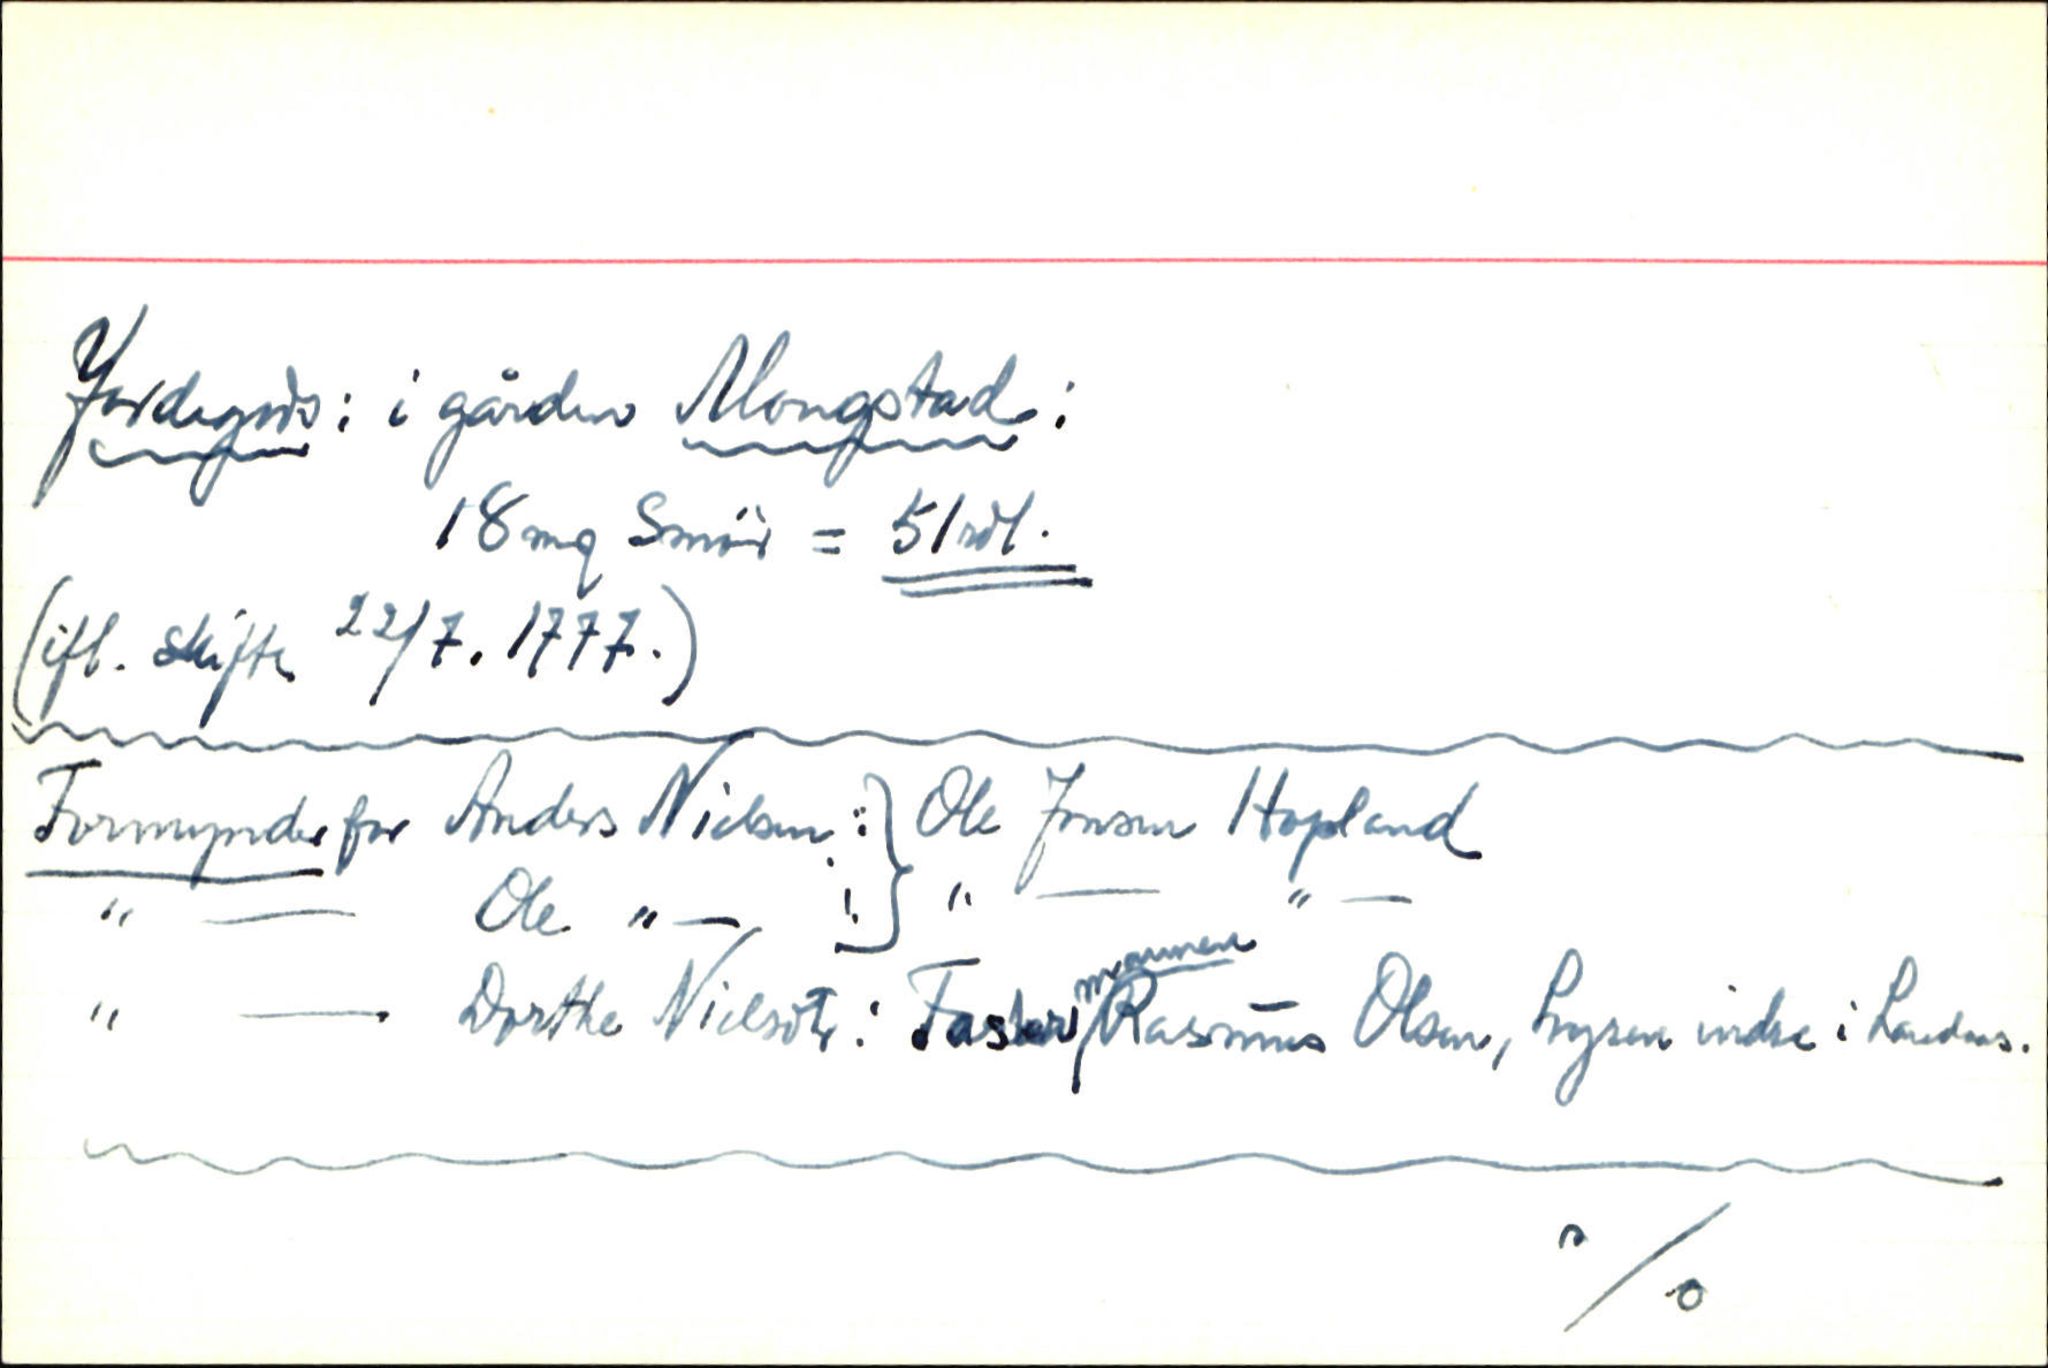 Jordegods: i gården Mongstad:
18 mg Smör = 51 rdl.
(ifl. skifte 22/7. 1777.)
Formynder for Anders Nielsen : } Ole Jonsen Hopland
" — Ole " — : } " — " —
" — Dorthe Nielsdtr: Faster mannen Rasmus Olsen, indre i
%